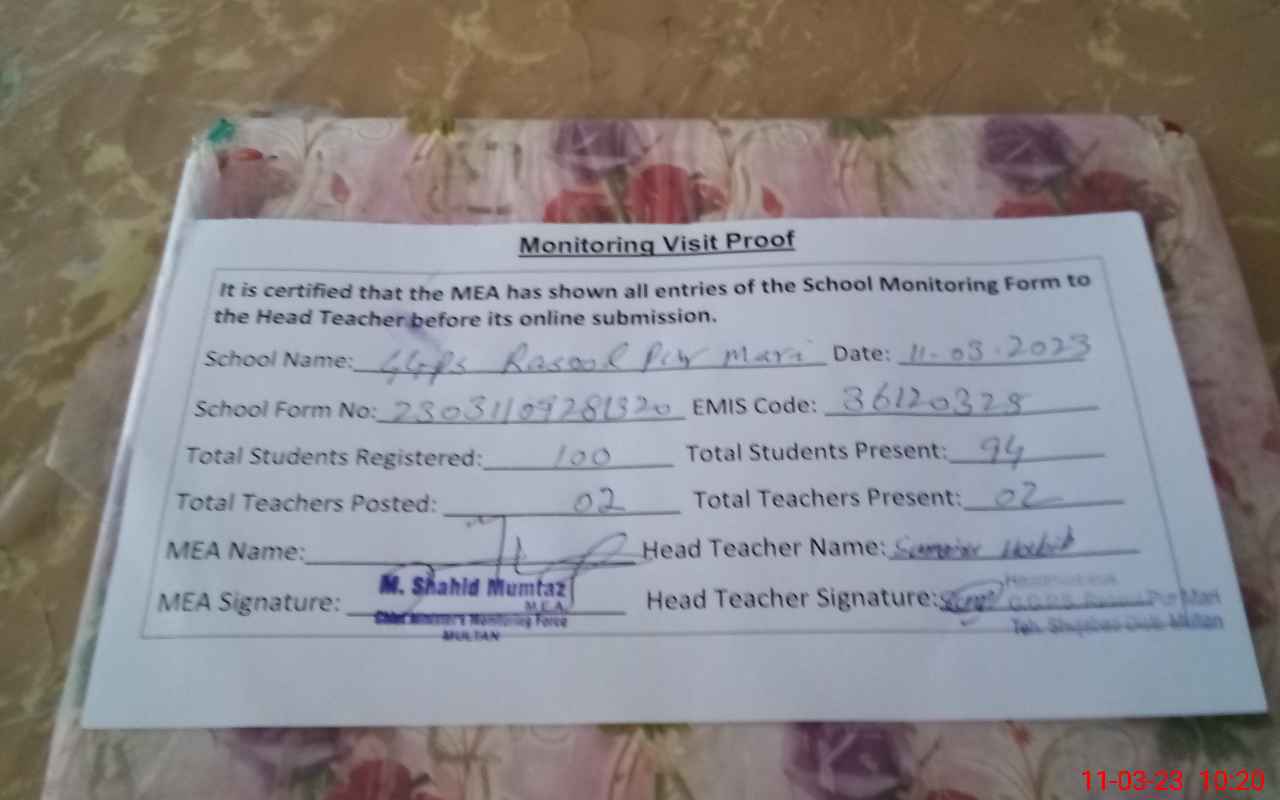 Monitoring Visit Proof
It is certified that the MEA has shown all entries of the School Monitoring Form to
the Head Teacher before its online submission.
School Name: GGPS Rasool Pur Mari Date: 11-03-2023
School Form No: EMIS Code: 36120329
Total Students Registered: 100 Total Students Present: 94
Total Teachers Posted: 02 Total Teachers Present: 02
MEA Name: Head Teacher Name:
M. Shahid Mumtaz
MEA Signature: Head Teacher Signature:
M.E.A
Chief Minister's Monitoring Force
MULTAN
Pur Mari
Teh. Multan
11-03-23 10:20